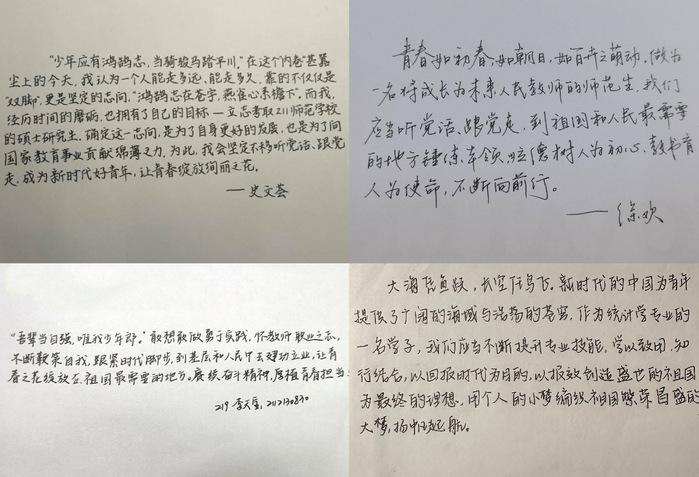 “少年应有鸿鹄志，当骑骏马踏平川。”在这个内卷甚嚣
尘上的今天，我认为一个人能走多远、能走多久，靠的不仅仅是
“双脚”，更是坚定的志向。“鸿鹄志在苍宇，燕雀心系檐下”。而我，
经历时间的磨砺，也拥有了自己的目标——立志考取211师范学校
的硕士研究生。确定这一志向，是为了自身更好的发展，也是为了向
国家教育事业贡献绵薄之力。为此，我会坚定不移听党话、跟党
走，成为新时代好青年，让青春绽放绚丽之花。
——史文荟
青春如初春，如朝日，如百卉之萌动。做为
一名将成长为未来人民教师的师范生，我们
应当听党话、跟党走，到祖国和人民最需要
的地方锤炼本领，以立德树人为初心，教书育
人为使命，不断向前行。
——徐欢
“吾辈当自强，唯我少年郎。”敢想敢做勇于实践，怀教师职业之志，
不断鞭策自我，跟紧时代脚步，到基层和人民中去建功立业，让青
春之花绽放在祖国最需要的地方。赓续奋斗精神，厚植青春担当
219 李天 2112130830
大海凭鱼跃，长空任鸟飞。新时代的中国为青年
提供了广阔的海域与浩荡的苍穹，作为统计学专业的
一名学子，我们应当不断提升专业技能，学以致用，知
行结合，以回报时代为目的，以报效创造盛世的祖国
为最终的理想，用个人的小梦编织祖国繁荣昌盛的
大梦，扬帆起航。